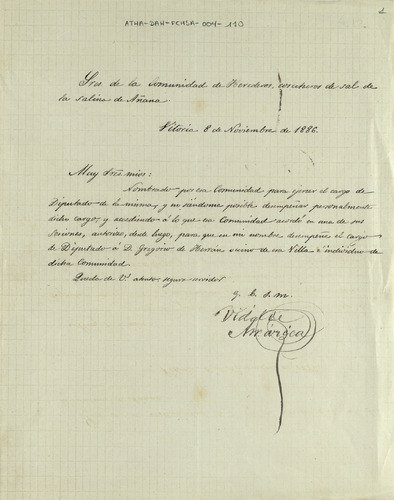 ATHA-DAH-FCHSA-004-110
Sres. de la Comunidad de Herederos, cosecheros de sal de
la salina de Añana.
Vitoria 8 de Noviembre de 1886.
Muy Sres mios:
Nombrado por esa Comunidad para ejercer el cargo de
Diputado de la misma, y no siéndome posible desempeñar personalmente
dicho cargo, y accediendo á lo que esa Comunidad acordó en una de sus
sesiones, autorizo, desde luego, para que en mi nombre desempeñe el cargo
de Diputado á D. Gregorio de Herrán vecino de esa Villa é individuo de
dicha Comunidad.
Queda de Vs atento seguro servidor
q. b. s. m.
Vidal de